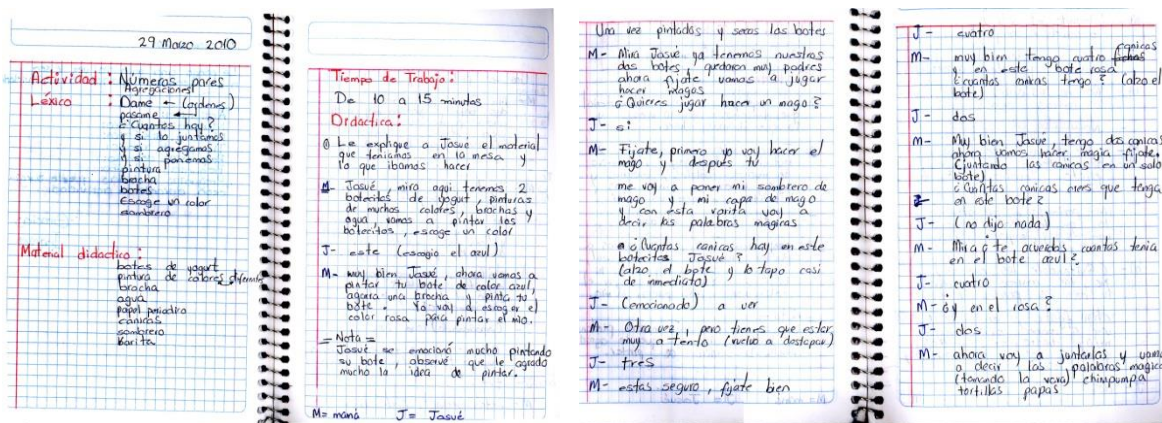 29 Marzo 2010
Actividad : Números pares
Agregaciones
Léxico : Dame ← (ordenes)
pasame ←
¿Cuantos hay?
y si lo juntamos
y si agregamos
y si ponemos
pintura
brocha
botes
Escoge un color
sombrero
Material didactico :
botes de yogurt
pintura de colores diferentes
brocha
agua
papel periodico
canicas
sombrero
barita
Tiempo de Trabajo :
De 10 a 15 minutos
Didactica :
Le explique a Josue el material
que teniamos en la mesa y
lo que ibamos hacer
M- Josué, mira aqui tenemos 2
botecitos de yogurt, pinturas
de muchos colores, brochas y
agua, vamos a pintar los
botecitos, escoge un color
J- este (escogio el azul)
M- muy bien Josué, ahora vamos a
pintar tu bote de color azul,
agarra una brocha y pinta tu
bote. Yo voy a escoger el
color rosa para pintar el mio.
= Nota =
Josué se emocionó mucho pintando
su bote, observé que le agrado
mucho la idea de pintar.
M= mamá J= Josué
Una vez pintados y secos los botes
M- Mira Josué, ya tenemos nuestros
dos botes, quedaron muy padres
ahora fijate vamos a jugar
hacer magos
¿Quieres jugar hacer un mago?
J- si
M- Fijate, primero yo voy hacer el
mago y después tu
me voy a poner mi sombrero de
mago y mi capa de mago
y con esta varita voy a
decir las palabras magicas
¿Cuantas canicas hay en este
botecitos Josué?
(alzo el bote y lo tapo casi
de inmediato)
J- (emocionado) a ver
M- Otra vez, pero tienes que estar
muy a tento (vuelvo a destapar)
J- tres
M- estas seguro, fijate bien
J- cuatro
M- muy bien tengo cuatro canicas
y en este bote rosa
¿cuantas canicas tengo? (alzo el
bote)
J- dos
M- Muy bien Josue, tengo dos canicas
ahora vamos hacer magia fijate.
(juntando las canicas en un solo
bote)
¿Cuantas canicas crees que tenga
en este bote?
J- (no dijo nada)
M- Mira ¿te acuerdas cuantas tenia
en el bote azul?
J- cuatro
M- ¿y en el rosa?
J- dos
M- ahora voy a juntarlas y vamos
a decir las palabras magicas
(tomando la vara) chimpumpa
tortillas papas